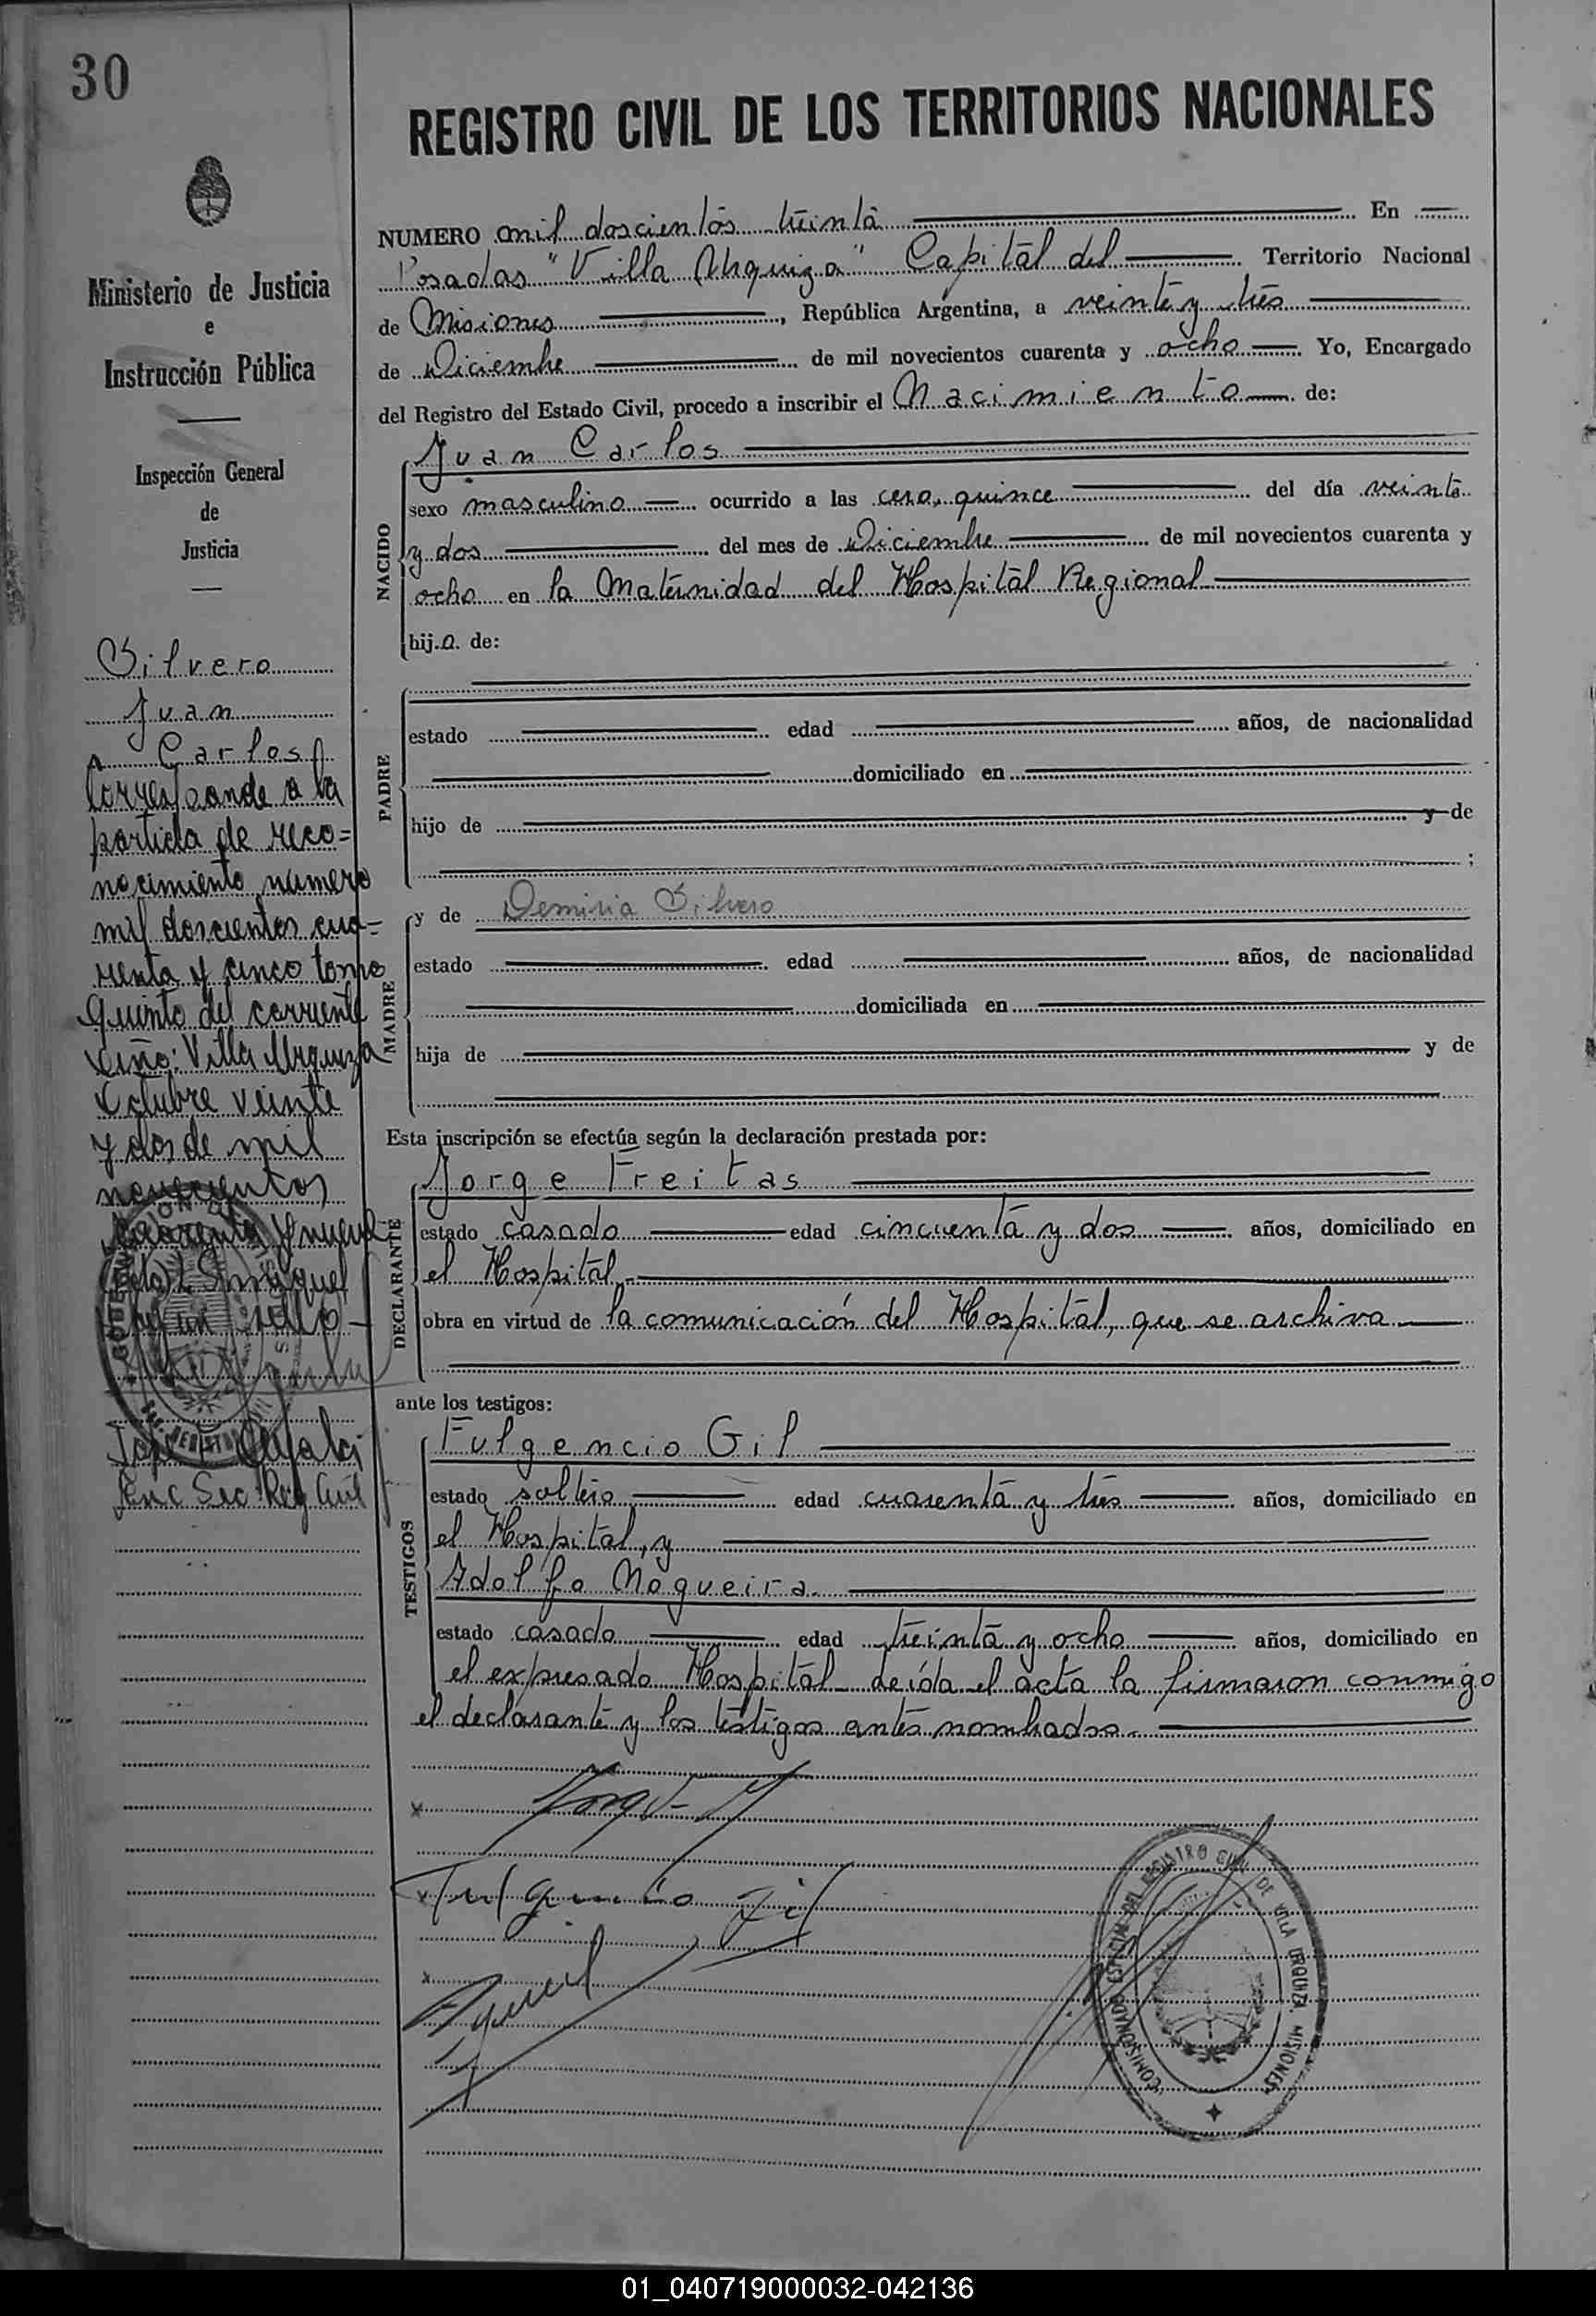 30
REGISTRO CIVIL DE LOS TERRITORIOS NACIONALES
Ministerio de Justicia
e
Instrucción Pública
Inspección General
de
Justicia
Silvero
Juan
Carlos
Corresponde a la
partida de reco=
nocimiento numero
mil doscientos cua=
renta y cinco tomo
Quinto del corriente
Año: Villa Urquiza
Octubre veinte
y dos de mil
novecientos
cuarenta y nueve
Sec Reg Civil
NUMERO mil doscientos treinta En
Posadas "Villa Urquiza" Capital del Territorio Nacional
de Misiones, República Argentina, a veinte y tres
de Diciembre de mil novecientos cuarenta y ocho Yo, Encargado
del Registro del Estado Civil, procedo a inscribir el Nacimiento de:
NACIDO
Juan Carlos
sexo masculino ocurrido a las cero, quince del día veinte
y dos del mes de Diciembre de mil novecientos cuarenta y
ocho en la Maternidad del Hospital Regional
hij.o. de:
PADRE
estado edad años, de nacionalidad
domiciliado en
hijo de y de
;
MADRE
y de Silvero
estado edad años, de nacionalidad
domiciliada en
hija de y de
Esta inscripción se efectúa según la declaración prestada por:
DECLARANTE
Jorge Freitas
estado casado edad cincuenta y dos años, domiciliado en
el Hospital,
obra en virtud de la comunicación del Hospital, que se archiva
ante los testigos:
TESTIGOS
Fulgencio Gil
estado soltero edad cuarenta y tres años, domiciliado en
el Hospital, y
Adolfo Nogueira
estado casado edad treinta y ocho años, domiciliado en
el expresado Hospital_ Leída el acta la firmaron conmigo
el declarante y los testigos antes nombrados.
Fulgencio Gil
COMISIONADO ESPECIAL DEL REGISTRO CIVIL DE VILLA URQUIZA MISIONES
01_040719000032-042136